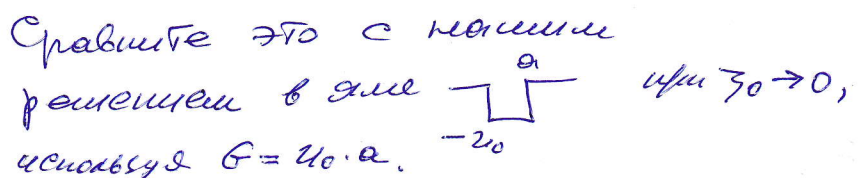 Сравните это с нашим
решением в яме a -u₀ при ζ₀→0,
используя G = u₀·a.